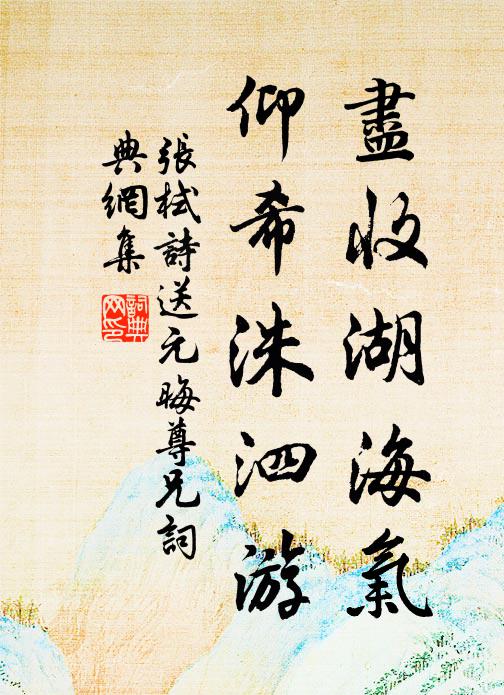 盡收湖海氣
仰希洙泗游
張栻詩送元晦尊兄詞
典網集
詞典網印